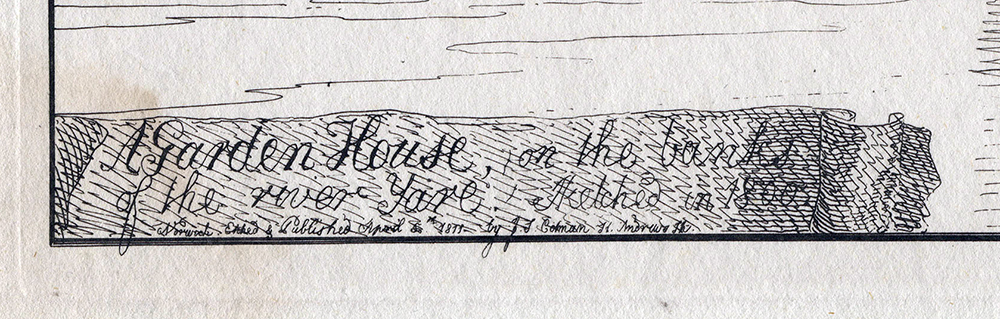 A Garden House, on the banks
of the river Yare. Sketched in 1800.
Norwich. Etched & Published April 8th 1811 by J. S. Cotman St. Andrews